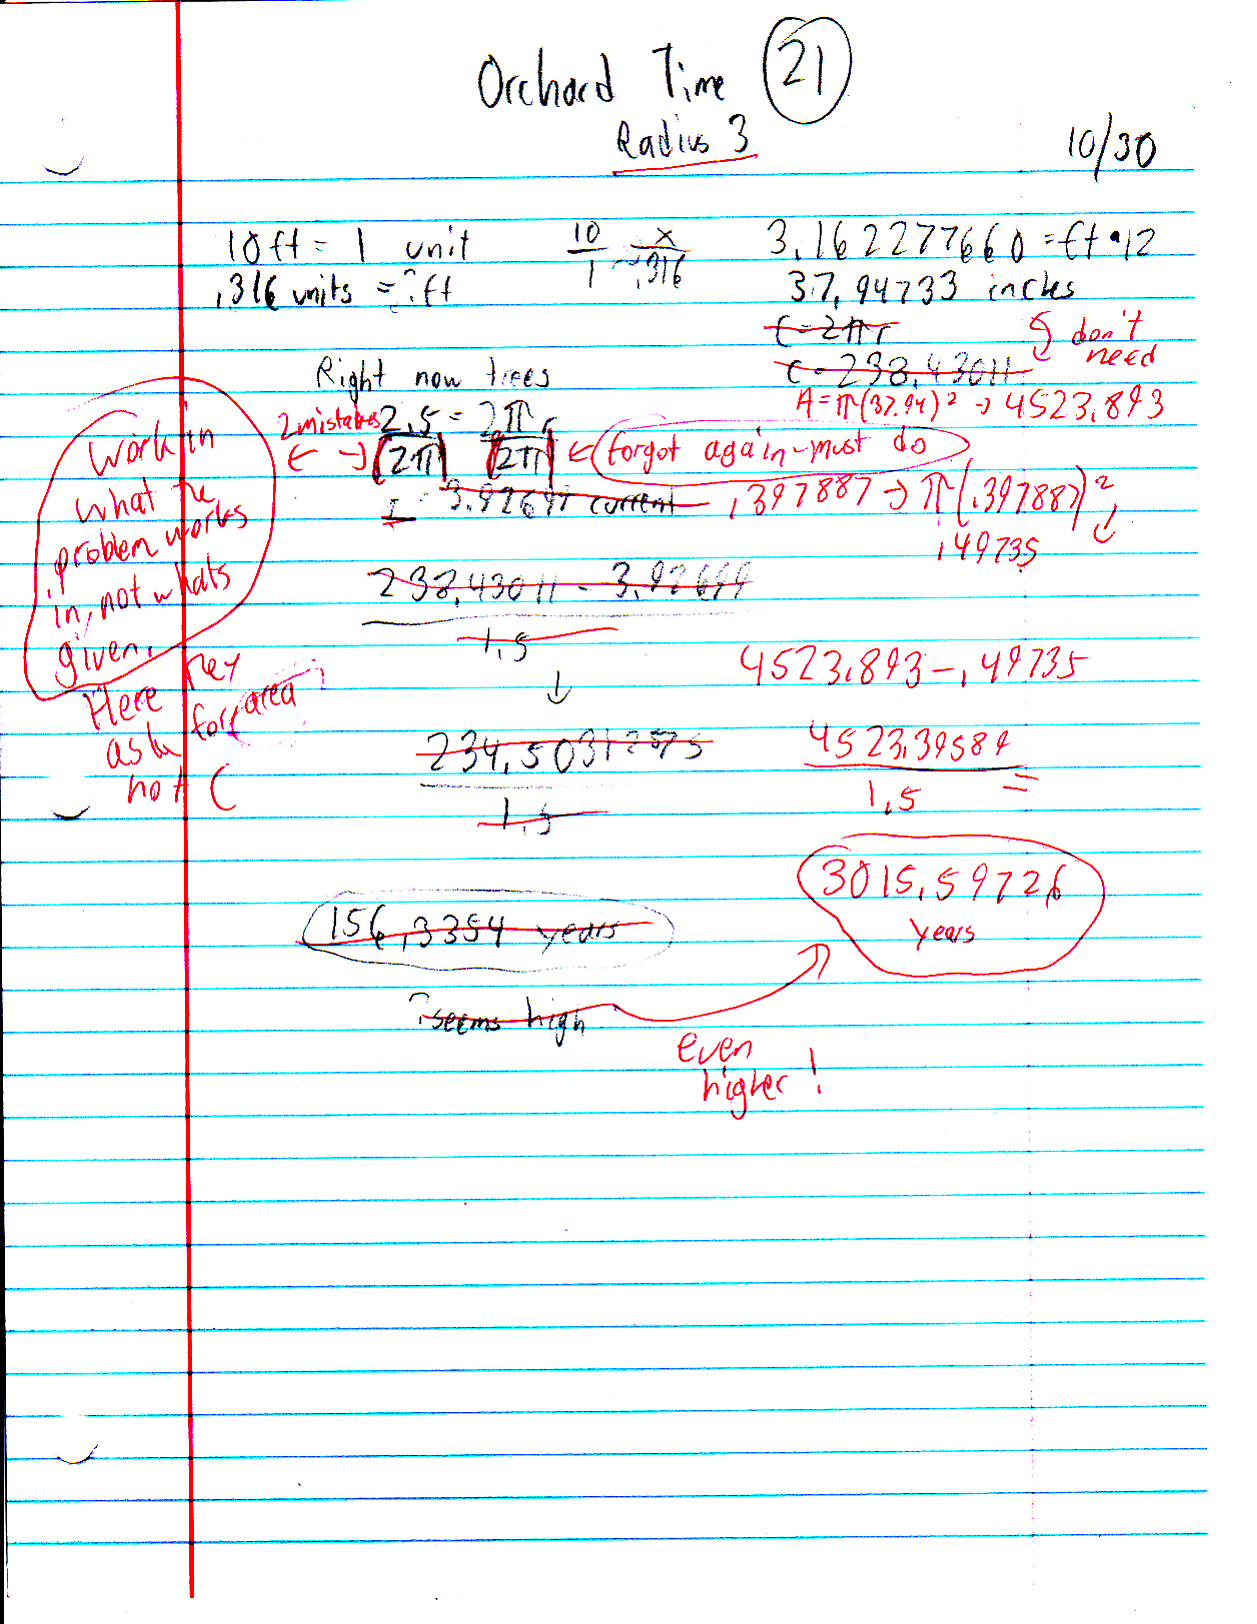 Orchard Time 21
Radius 3
10/30
10ft = 1 unit
.316 units = ? ft
10/1 = x/.316
3.162277660 = ft • 12
37.94733 inches
C = 2πr
C = 238.43011
don't need
A = π(37.94)² → 4523.893
Right now trees
2 mistakes
2.5 = 2πr
← → (2π) (2π) ← forgot again - must do
3.92699 current
.397887 → π(.397887)²
.49735
238.43011 - 3.92699
1.5
4523.893 - .49735
234.5031257 5
1.5
4523.39589
1.5 =
156.3354 years
? seems high
3015.59726
years
even
higher!
Work in
what the
problem works
in, not whats
given.
Here they
ask for area
not C